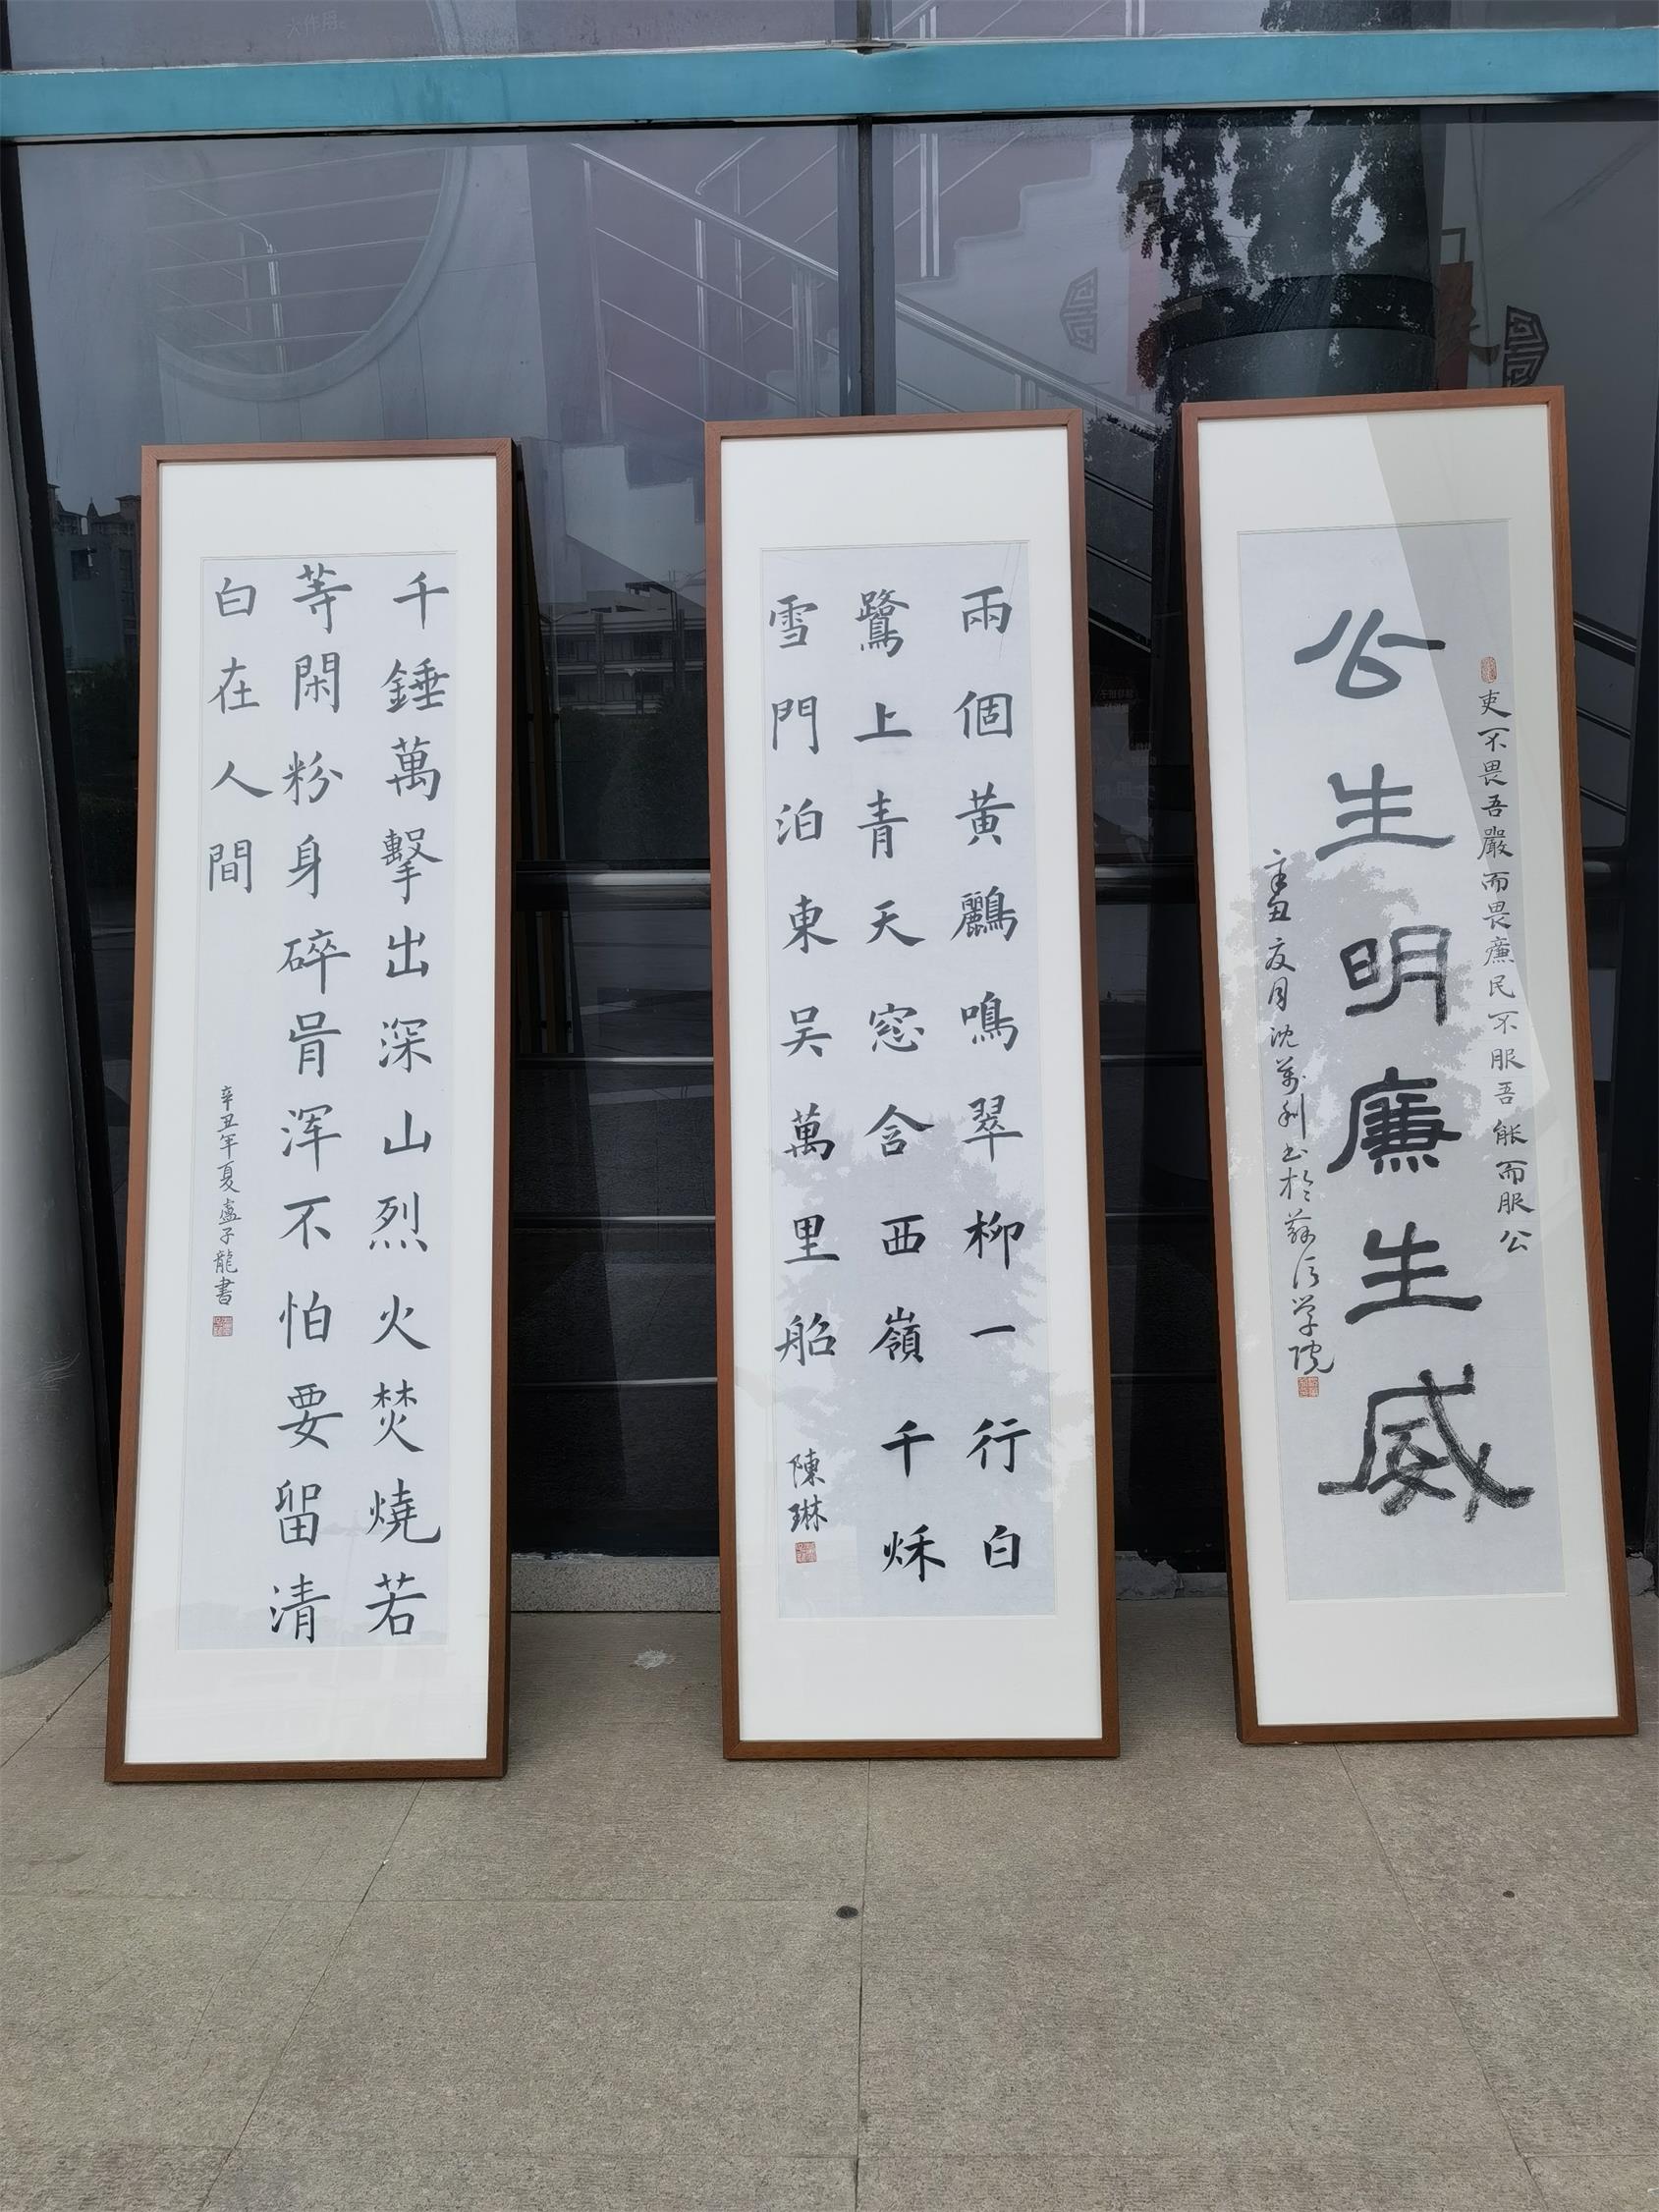 千錘萬擊出深山烈火焚燒若
等閑粉身碎骨浑不怕要留清
白在人間
辛丑年夏盧子龍書
兩個黃鸝鳴翠柳一行白
鷺上青天窓含西嶺千秌
雪門泊東吴萬里船
陳琳
吏不畏吾嚴而畏廉民不服吾能而服公
公生明廉生威
辛丑夏月沈萬利书於蘇信学院